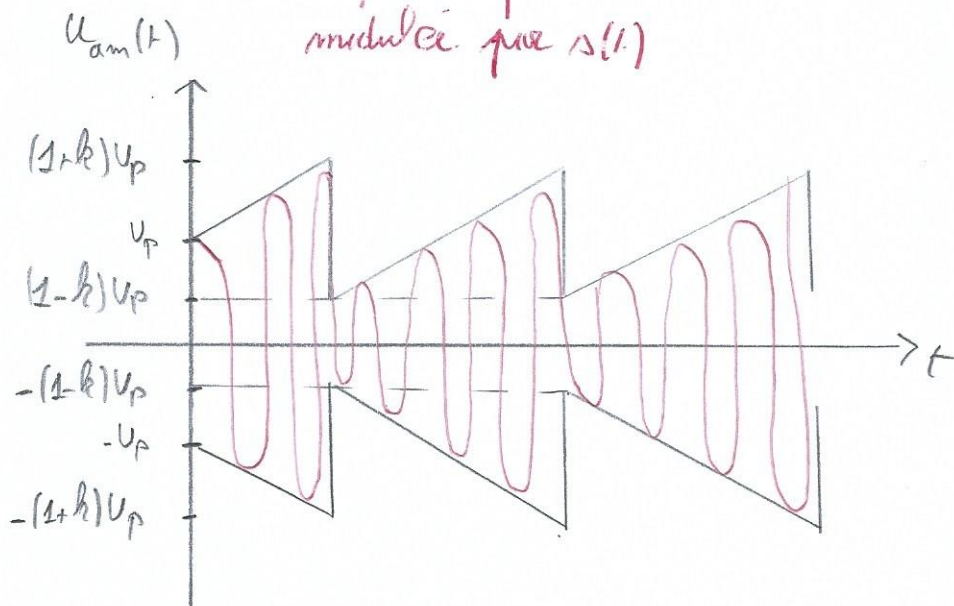 u_am(t)
modulée par s(t)
(1+k)U_p
U_p
(1-k)U_p
t
-(1-k)U_p
-U_p
-(1+k)U_p